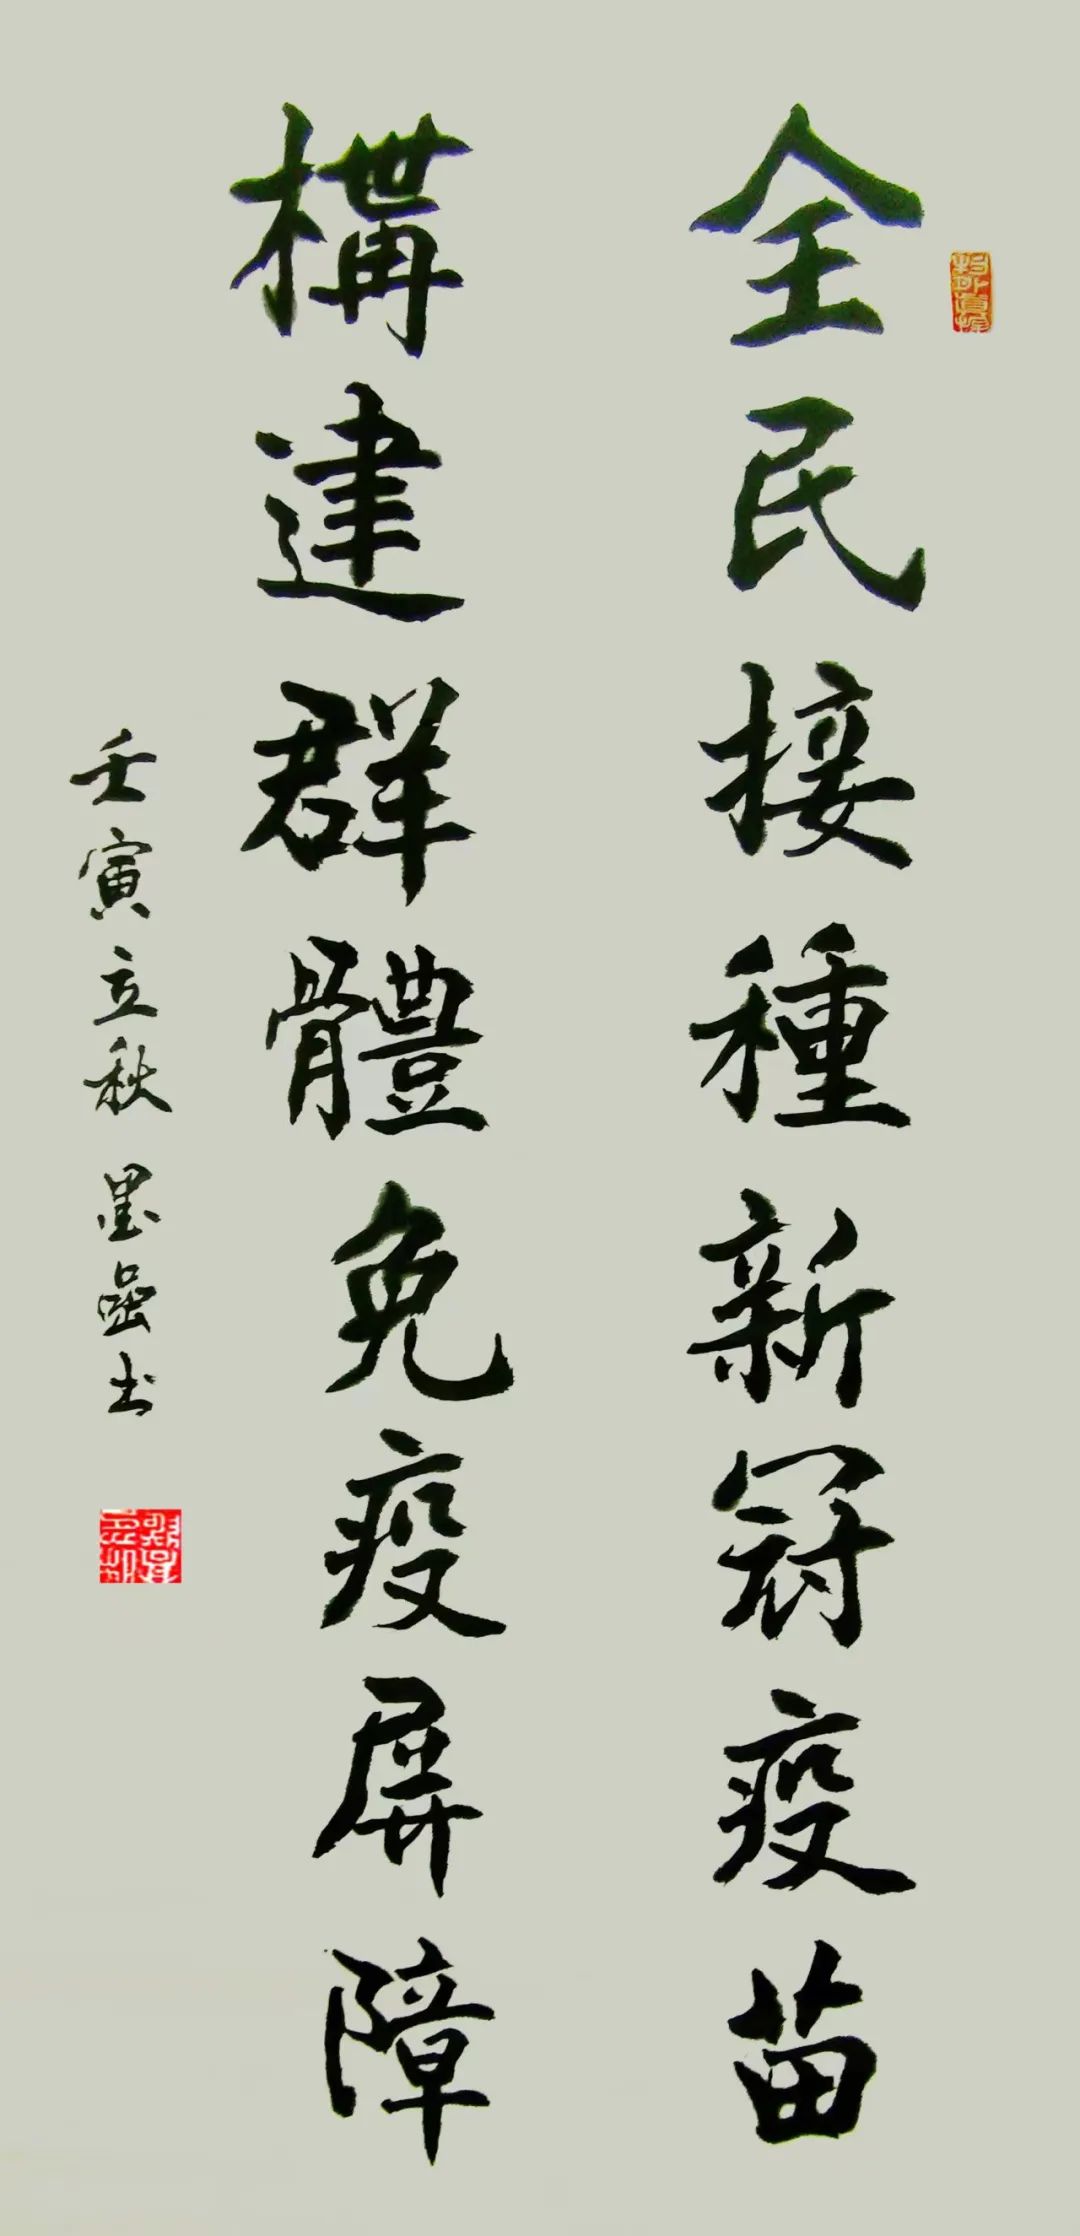 全民接種新冠疫苗
構建群體免疫屏障
壬寅立秋墨嵒书